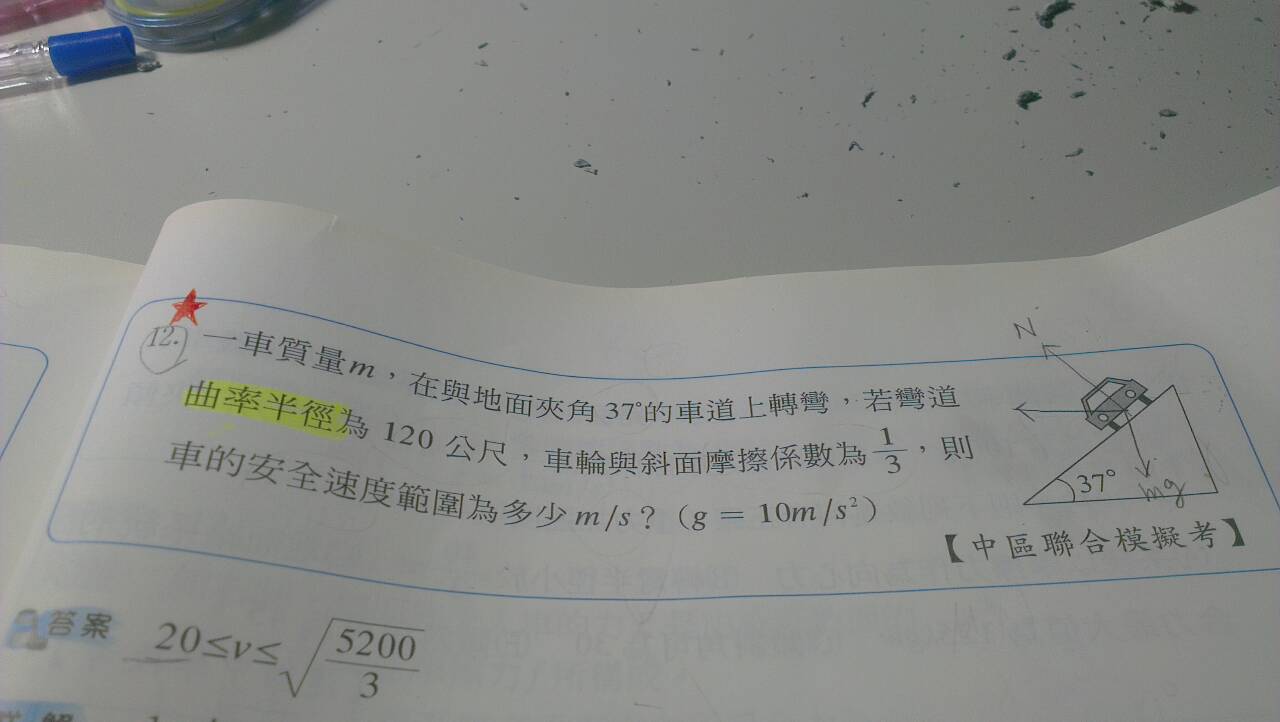 12. 一車質量m，在與地面夾角37°的車道上轉彎，若彎道
曲率半徑為 120 公尺，車輪與斜面摩擦係數為 1/3，則
車的安全速度範圍為多少 m/s？（g = 10m/s²）
【中區聯合模擬考】
N
37°
mg
答案 20≤v≤√(5200/3)